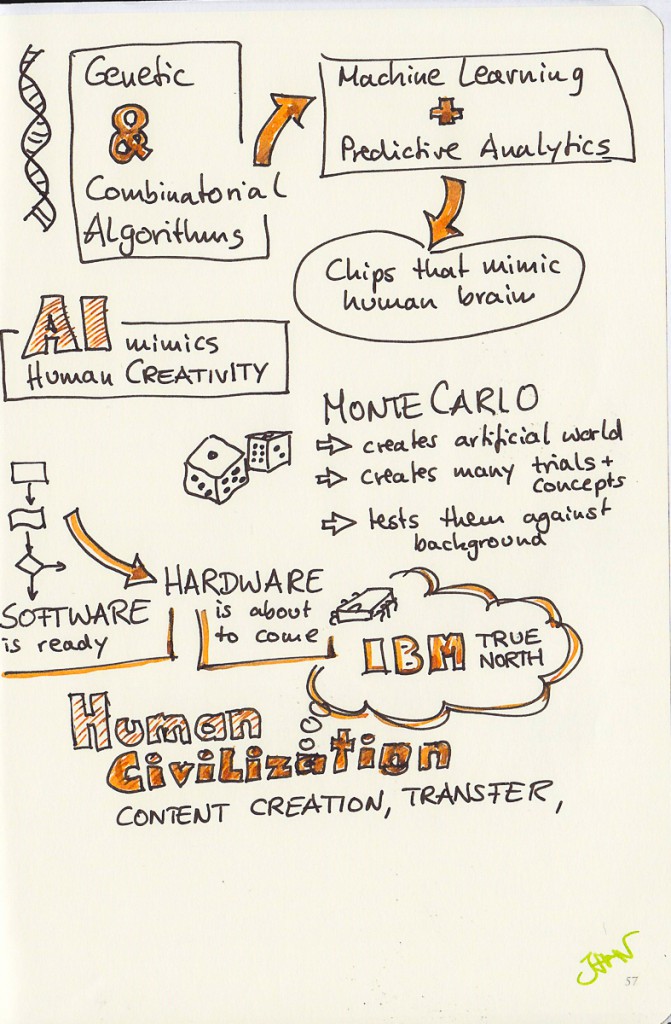 Genetic
&
Combinatorial
Algorithms
Machine Learning
+
Predictive Analytics
Chips that mimic
human brain
AI mimics
Human CREATIVITY
MONTE CARLO
⇒ creates artificial world
⇒ creates many trials +
concepts
⇒ tests them against
background
SOFTWARE
is ready
HARDWARE
is about
to come
IBM TRUE
NORTH
Human
Civilization
CONTENT CREATION, TRANSFER,
57